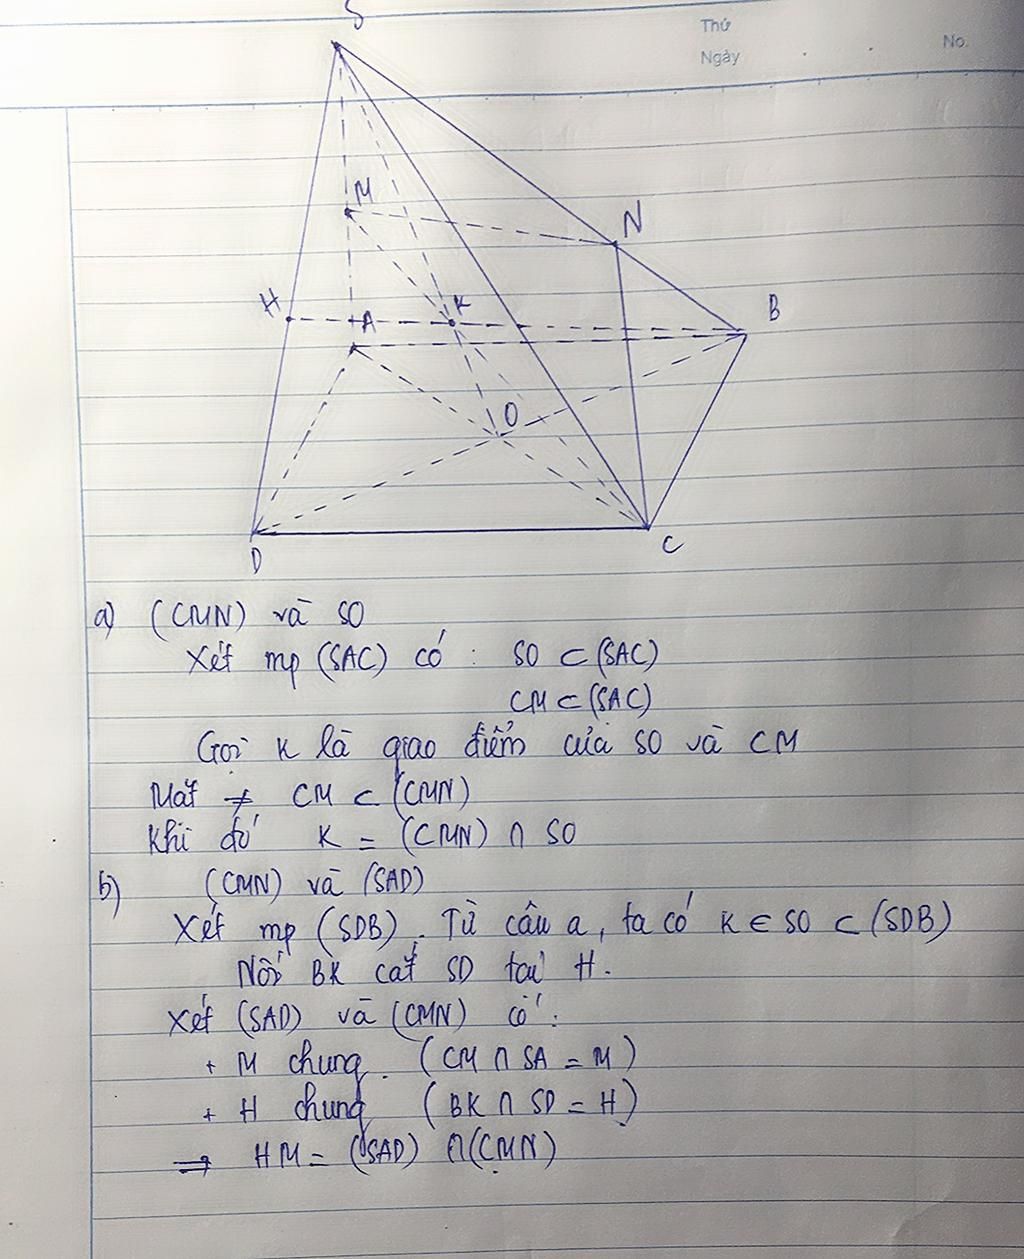 Thứ
Ngày
No.
S
M
N
H
A
K
B
O
D
C
a) (CMN) và SO
Xét mp (SAC) có : SO ⊂ (SAC)
CM ⊂ (SAC)
Gọi K là giao điểm của SO và CM
Mặt ≠ CM ⊂ (CMN)
Khi đó K = (CMN) ∩ SO
b) (CMN) và (SAD)
Xét mp (SDB). Từ câu a, ta có K ∈ SO ⊂ (SDB)
Nối BK cắt SD tại H.
Xét (SAD) và (CMN) có :
+ M chung. (CM ∩ SA = M)
+ H chung (BK ∩ SD = H)
⇒ HM = (SAD) ∩ (CMN)